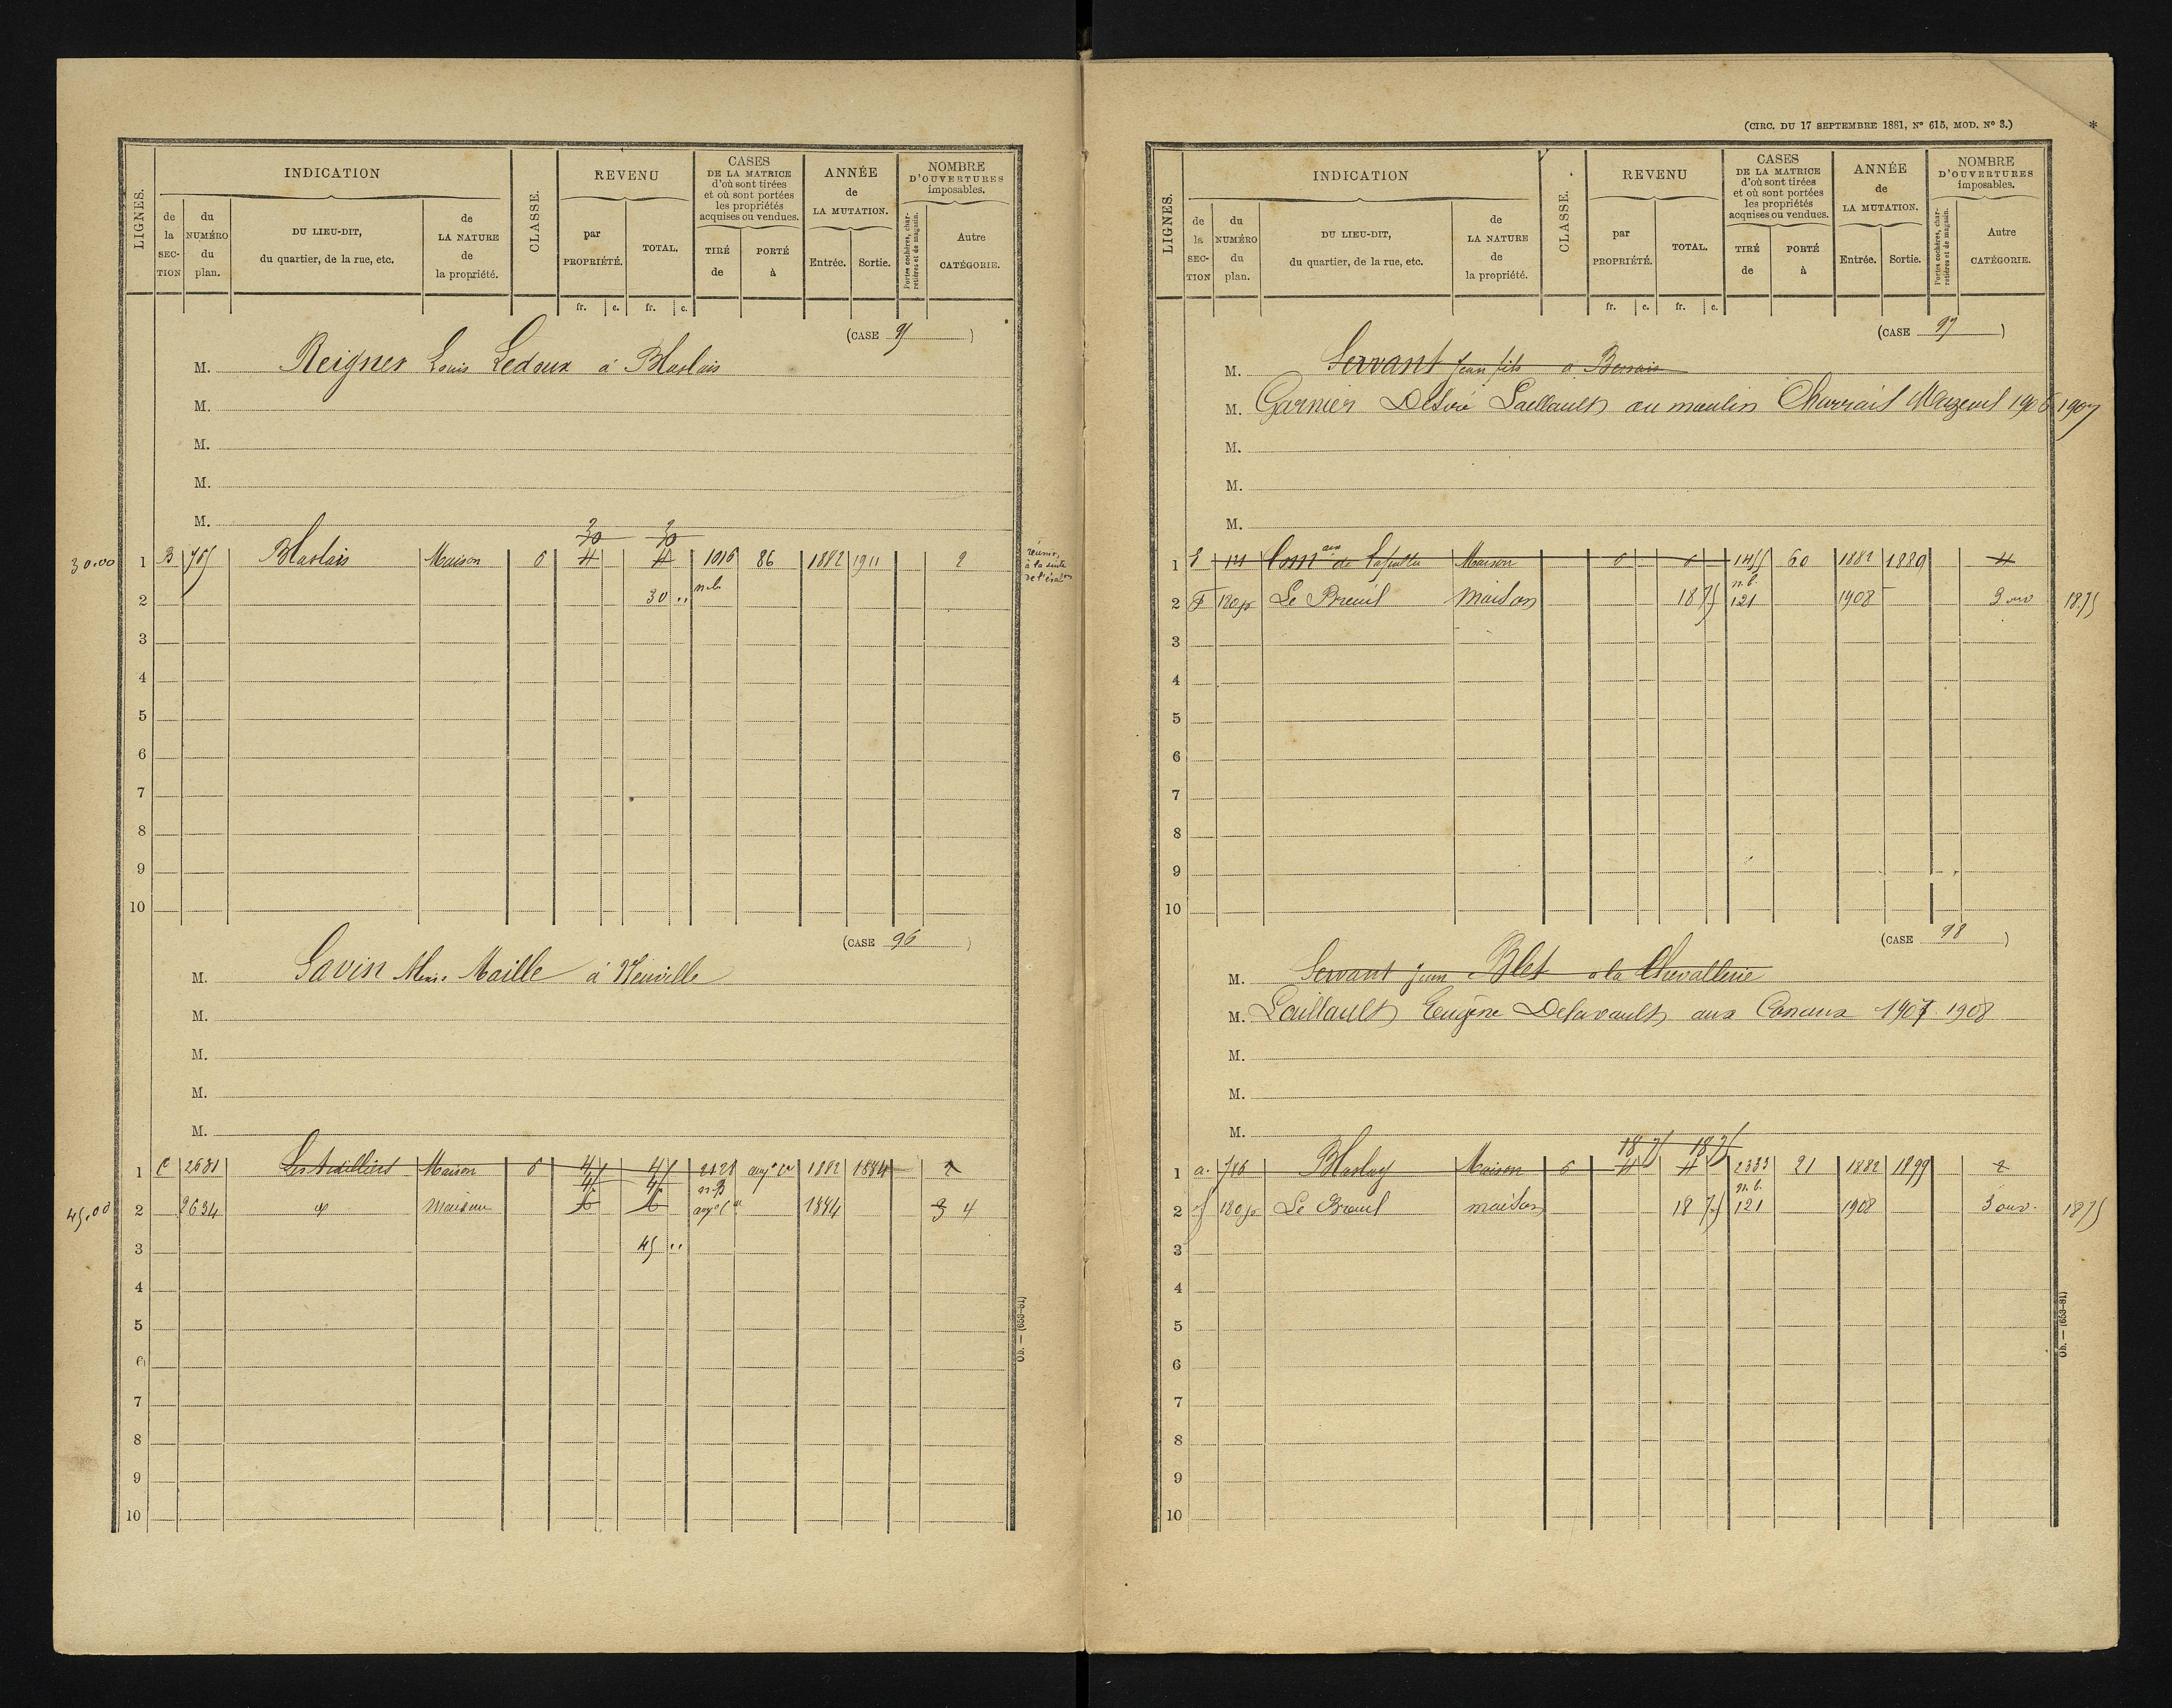 LIGNES.
INDICATION
de la SECTION
du NUMÉRO du plan.
DU LIEU-DIT, du quartier, de la rue, etc.
de LA NATURE de la propriété.
CLASSE.
REVENU
par PROPRIÉTÉ.
TOTAL.
CASES DE LA MATRICE d'où sont tirées et où sont portées les propriétés acquises ou vendues.
TIRÉ de
PORTÉ à
ANNÉE de LA MUTATION.
Entrée.
Sortie.
NOMBRE D'OUVERTURES imposables.
Portes cochères, charretières et de magasin.
Autre CATÉGORIE.
fr. c. fr. c.
(CASE 95 )
M. Reigner Louis Ledoux à Blaslais
M.
M.
M.
M.
30 30
30.00 1 B 765 Blaslais Maison 6 4 4 1016 86 1882 1911 2
2 30 .. n.b.
3
4
5
6
7
8
9
10
(CASE 96 )
M. Gavin Maille à Neuville
M.
M.
M.
M.
1 C 2631 Maison 6 45 45 2128 1882 1884 2
45.00 2 2634 Maison 1884 3 4
3 45 ..
4
5
6
7
8
9
10
Ob. — (653-81)
(CIRC. DU 17 SEPTEMBRE 1881, Nº 615, MOD. Nº 3.)
*
LIGNES.
INDICATION
de la SECTION
du NUMÉRO du plan.
DU LIEU-DIT, du quartier, de la rue, etc.
de LA NATURE de la propriété.
CLASSE.
REVENU
par PROPRIÉTÉ.
TOTAL.
CASES DE LA MATRICE d'où sont tirées et où sont portées les propriétés acquises ou vendues.
TIRÉ de
PORTÉ à
ANNÉE de LA MUTATION.
Entrée.
Sortie.
NOMBRE D'OUVERTURES imposables.
Portes cochères, charretières et de magasin.
Autre CATÉGORIE.
fr. c. fr. c.
(CASE 97 )
M. Servant Jean fils à
M. Garnier Désiré Laillault au moulin 1906 1907
M.
M.
M.
1 121 Maison 6 6 1455 60 1882 1889 4
2 F 120 Le Breuil maison 18 75 n.b. 121 1908 3 ouv 18.75
3
4
5
6
7
8
9
10
(CASE 98 )
M. Servant Jean Blet à la Chevallerie
M. Laillault Eugène Delavault aux Canaux 1907 1908
M.
M.
M.
18 75 18 75
1 a. 786 Blaslay Maison 6 4 4 2333 21 1882 1899 2
2 f 120 Le Breuil maison 18 75 n.b. 121 1908 3 ouv. 18 75
3
4
5
6
7
8
9
10
Ob. — (653-81)